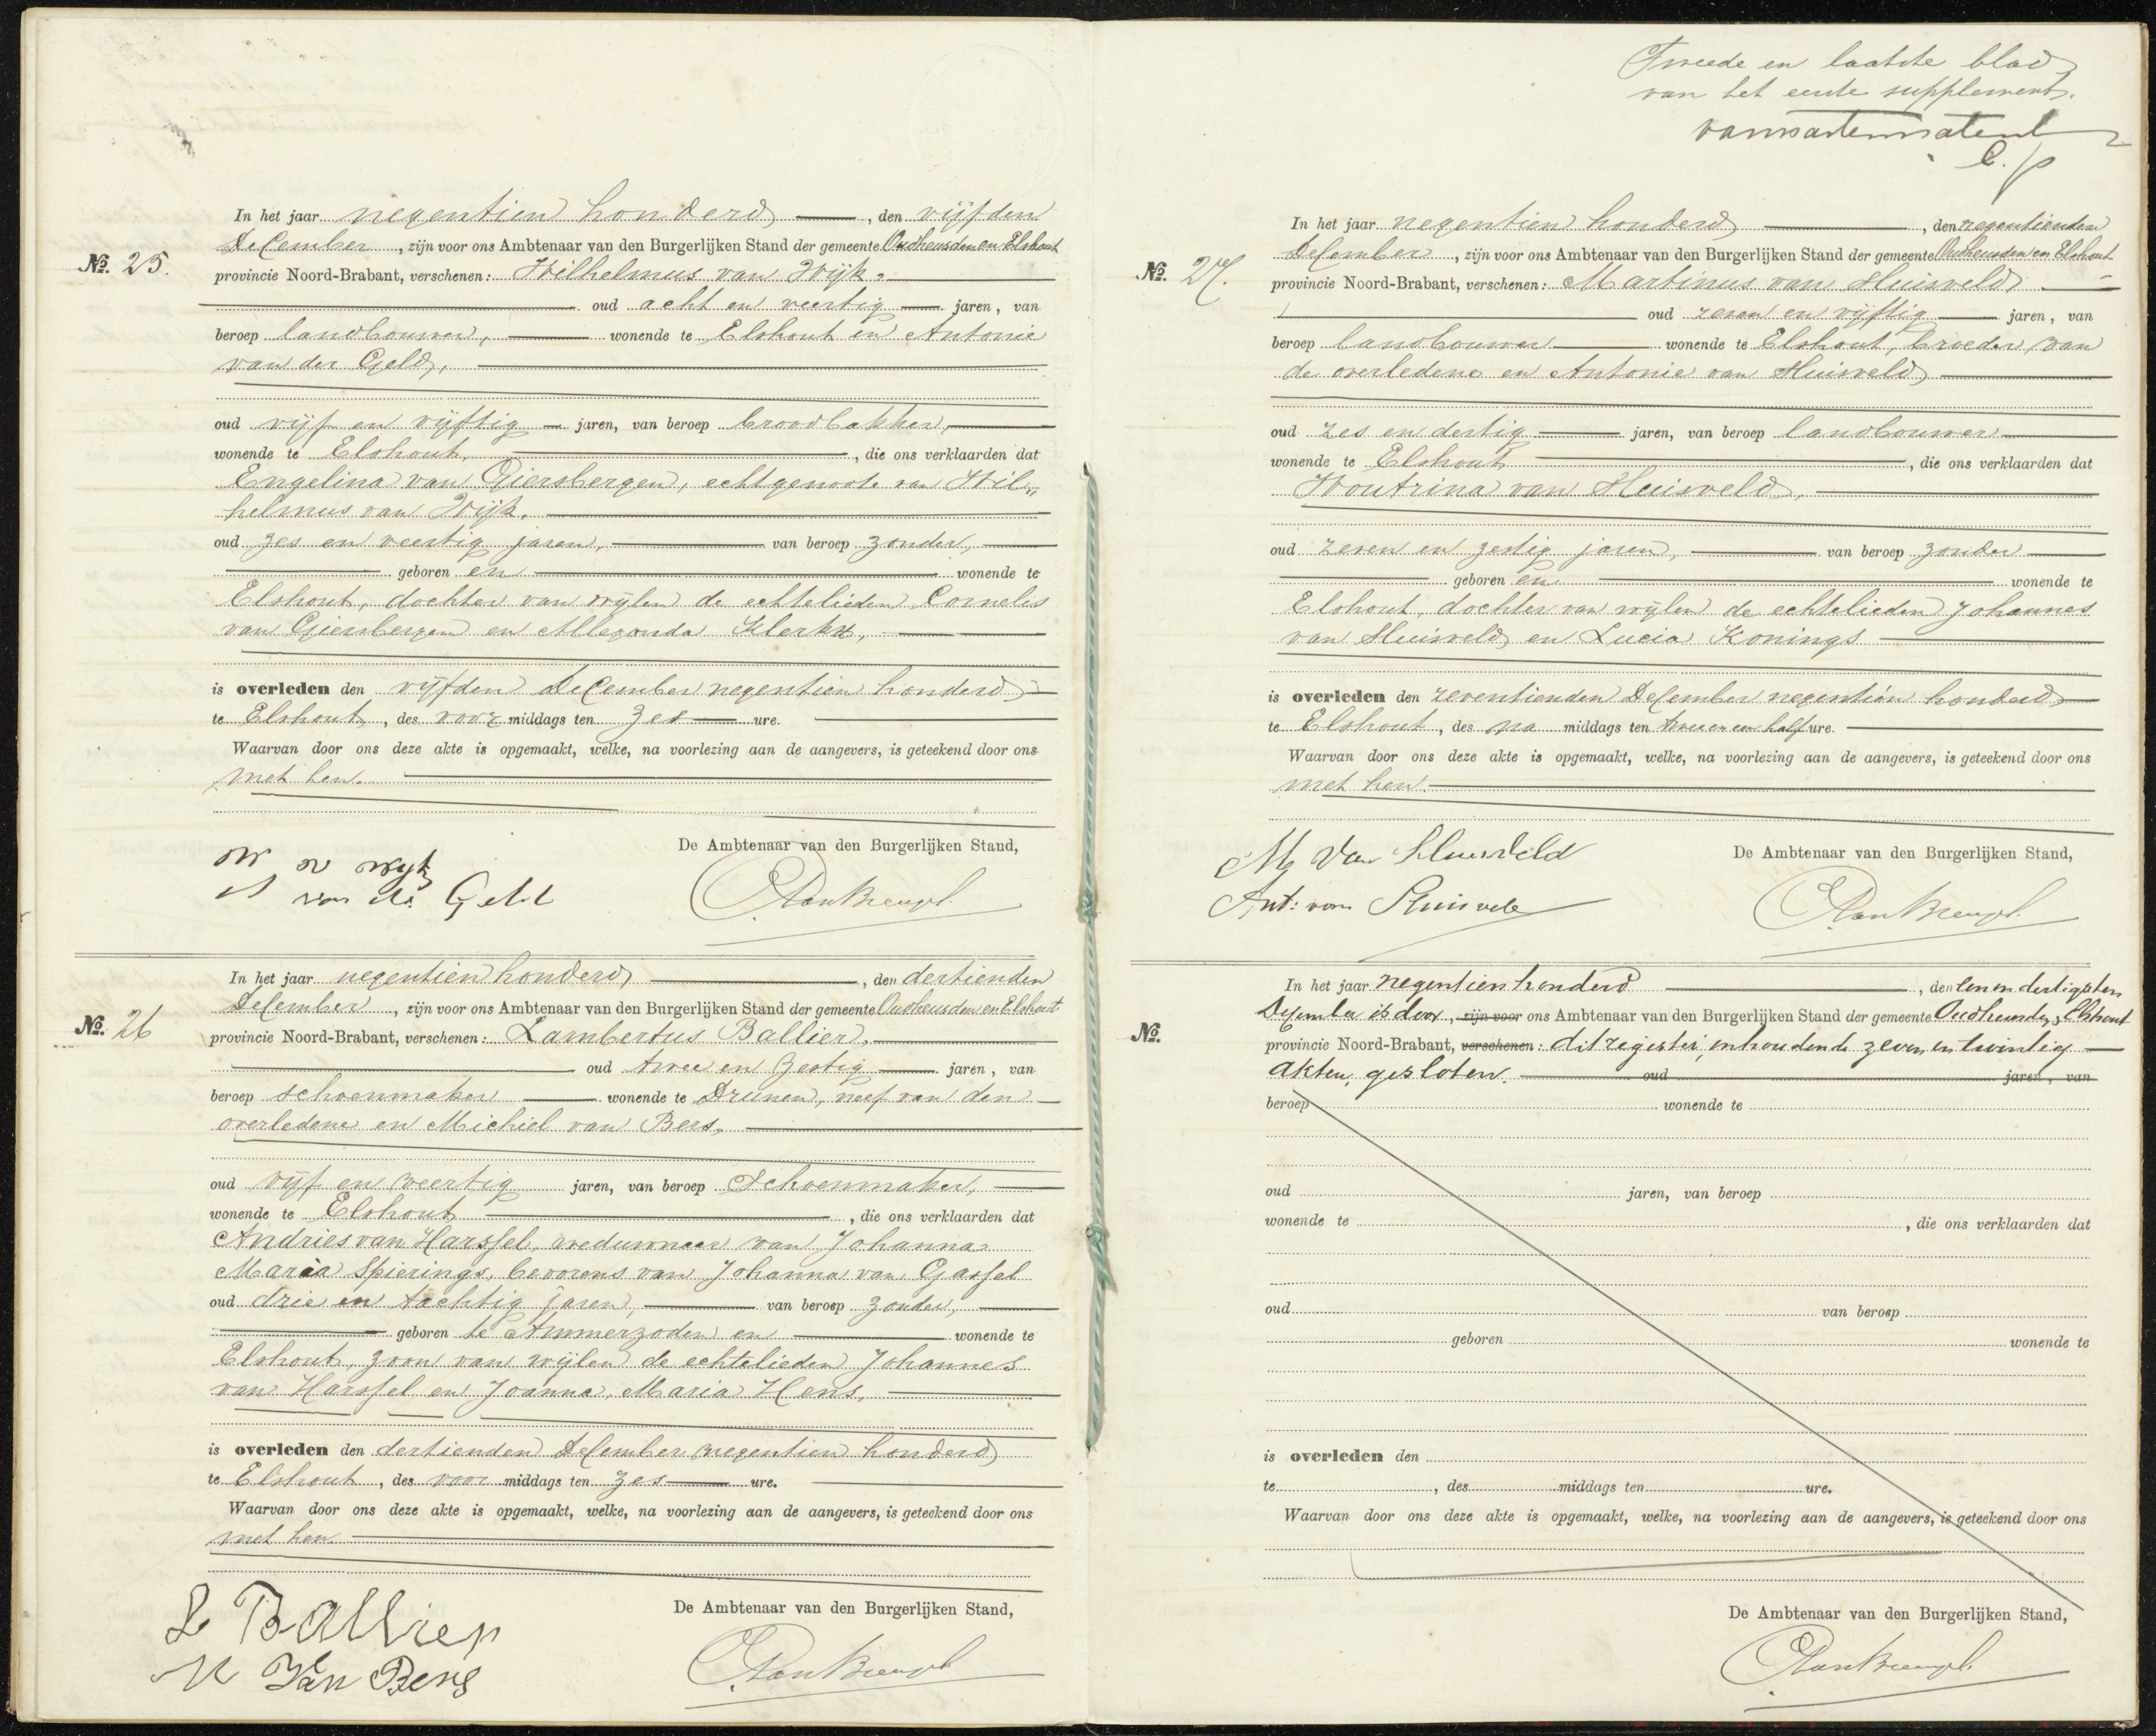 No. 25.
In het jaar negentien honderd, den vijfden
December, zijn voor ons Ambtenaar van den Burgerlijken Stand der gemeente Oudheusden en Elshout
provincie Noord-Brabant, verschenen: Wilhelmus van Wijk,
oud acht en veertig jaren, van
beroep landbouwer, wonende te Elshout en Antonie
van der Geld,
oud vijf en vijftig jaren, van beroep broodbakker,
wonende te Elshout, die ons verklaarden dat
Engelina van Giersbergen, echtgenoote van Wil„
helmus van Wijk,
oud zes en veertig jaren, van beroep zonder,
geboren en wonende te
Elshout, dochter van wijlen de echtelieden Cornelis
van Giersbergen en Allegonda Klerkx,
is overleden den vijfden December negentien honderd
te Elshout, des voor middags ten zes ure.
Waarvan door ons deze akte is opgemaakt, welke, na voorlezing aan de aangevers, is geteekend door ons
met hen.
De Ambtenaar van den Burgerlijken Stand,
W v Wyk
A van de Geld
No. 26
In het jaar negentien honderd, den dertienden
December, zijn voor ons Ambtenaar van den Burgerlijken Stand der gemeente Oudheusden en Elshout
provincie Noord-Brabant, verschenen: Lambertus Ballier,
oud twee en zestig jaren, van
beroep schoenmaker wonende te Drunen, neef van den
overledene en Michiel van Bers,
oud vijf en veertig jaren, van beroep schoenmaker,
wonende te Elshout, die ons verklaarden dat
Andries van Harssel, weduwnaar van Johanna
Maria Spierings, bevorens van Johanna van Gassel
oud drie en tachtig jaren, van beroep zonder,
geboren te Ammerzoden en wonende te
Elshout, zoon van wijlen de echtelieden Johannes
van Harssel en Joanna Maria Hens,
is overleden den dertienden December negentien honderd
te Elshout, des voor middags ten zes ure.
Waarvan door ons deze akte is opgemaakt, welke, na voorlezing aan de aangevers, is geteekend door ons
met hen.
De Ambtenaar van den Burgerlijken Stand,
L Ballier
M Van Bers
Tweede en laatste blad
van het eerste supplement.
No. 27.
In het jaar negentien honderd, den negentienden
December, zijn voor ons Ambtenaar van den Burgerlijken Stand der gemeente Oudheusden en Elshout
provincie Noord-Brabant, verschenen: Martinus van Huisveld
oud zeven en vijftig jaren, van
beroep landbouwer wonende te Elshout, broeder van
de overledene en Antonie van Huisveld
oud zes en dertig jaren, van beroep landbouwer
wonende te Elshout, die ons verklaarden dat
Woutrina van Huisveld,
oud zeven en zestig jaren, van beroep zonder
geboren en wonende te
Elshout, dochter van wijlen de echtelieden Johannes
van Huisveld en Lucia Konings
is overleden den zeventienden December negentien honderd
te Elshout, des na middags ten twee en een half ure.
Waarvan door ons deze akte is opgemaakt, welke, na voorlezing aan de aangevers, is geteekend door ons
met hen.
De Ambtenaar van den Burgerlijken Stand,
M Van Huisveld
Ant: van Huisveld
No.
In het jaar negentien honderd, den een en dertigsten
December is door, zijn voor ons Ambtenaar van den Burgerlijken Stand der gemeente Oudheusden, Elshout
provincie Noord-Brabant, verschenen: dit register, inhoudende zeven en twintig
akten, gesloten. oud jaren, van
beroep wonende te
oud jaren, van beroep
wonende te , die ons verklaarden dat
oud van beroep
geboren wonende te
is overleden den
te , des middags ten ure.
Waarvan door ons deze akte is opgemaakt, welke, na voorlezing aan de aangevers, is geteekend door ons
De Ambtenaar van den Burgerlijken Stand,